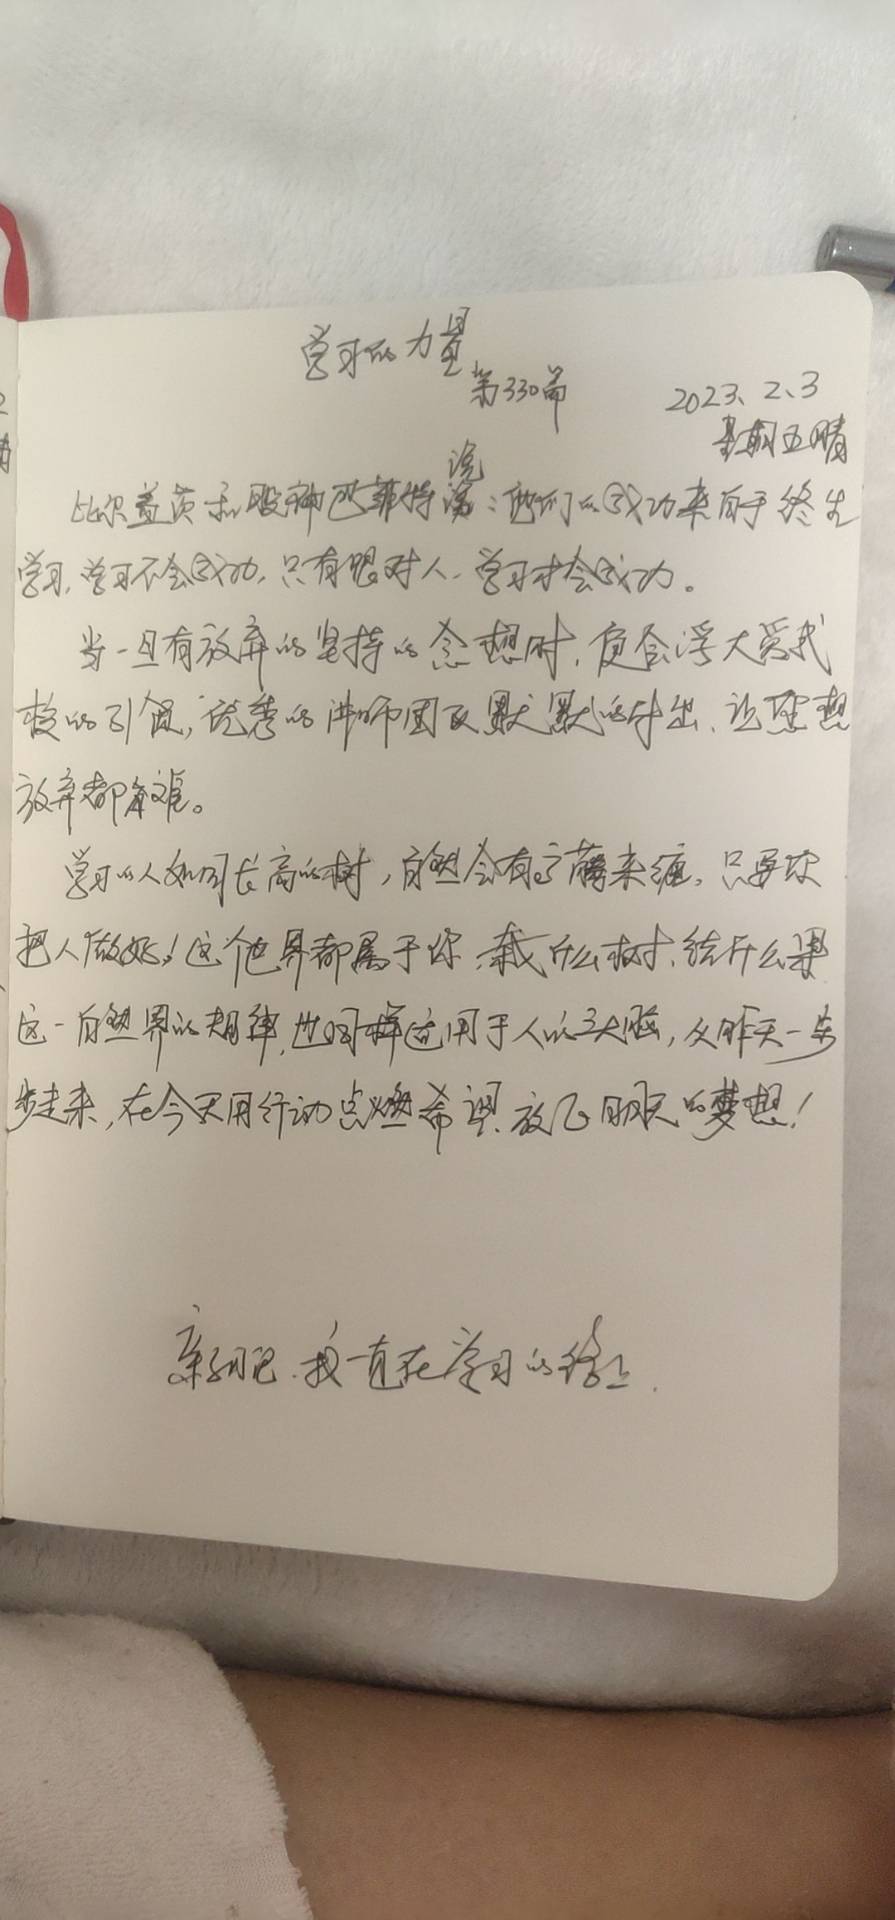 学习的力量
第330篇
2023、2、3
星期五晴
说
比尔盖茨和股神巴菲特：他们的成功来自于终生
学习，学习不会成功，只有跟对人，学习才会成功。
当一旦有放弃的坚持的念想时，便会浮大爱我
校的引领，优秀的讲师团及默默的付出、让您想
放弃都难。
学习的人如同长高的树，自然会有了藤来缠，只要你
把人做好！这个世界都属于你，栽什么树、结什么果
这一自然界的规律，也同样适用于人的大脑，从昨天一步
步走来，在今天用行动点燃希望，放飞明天的梦想！
我一直在学习的路上.